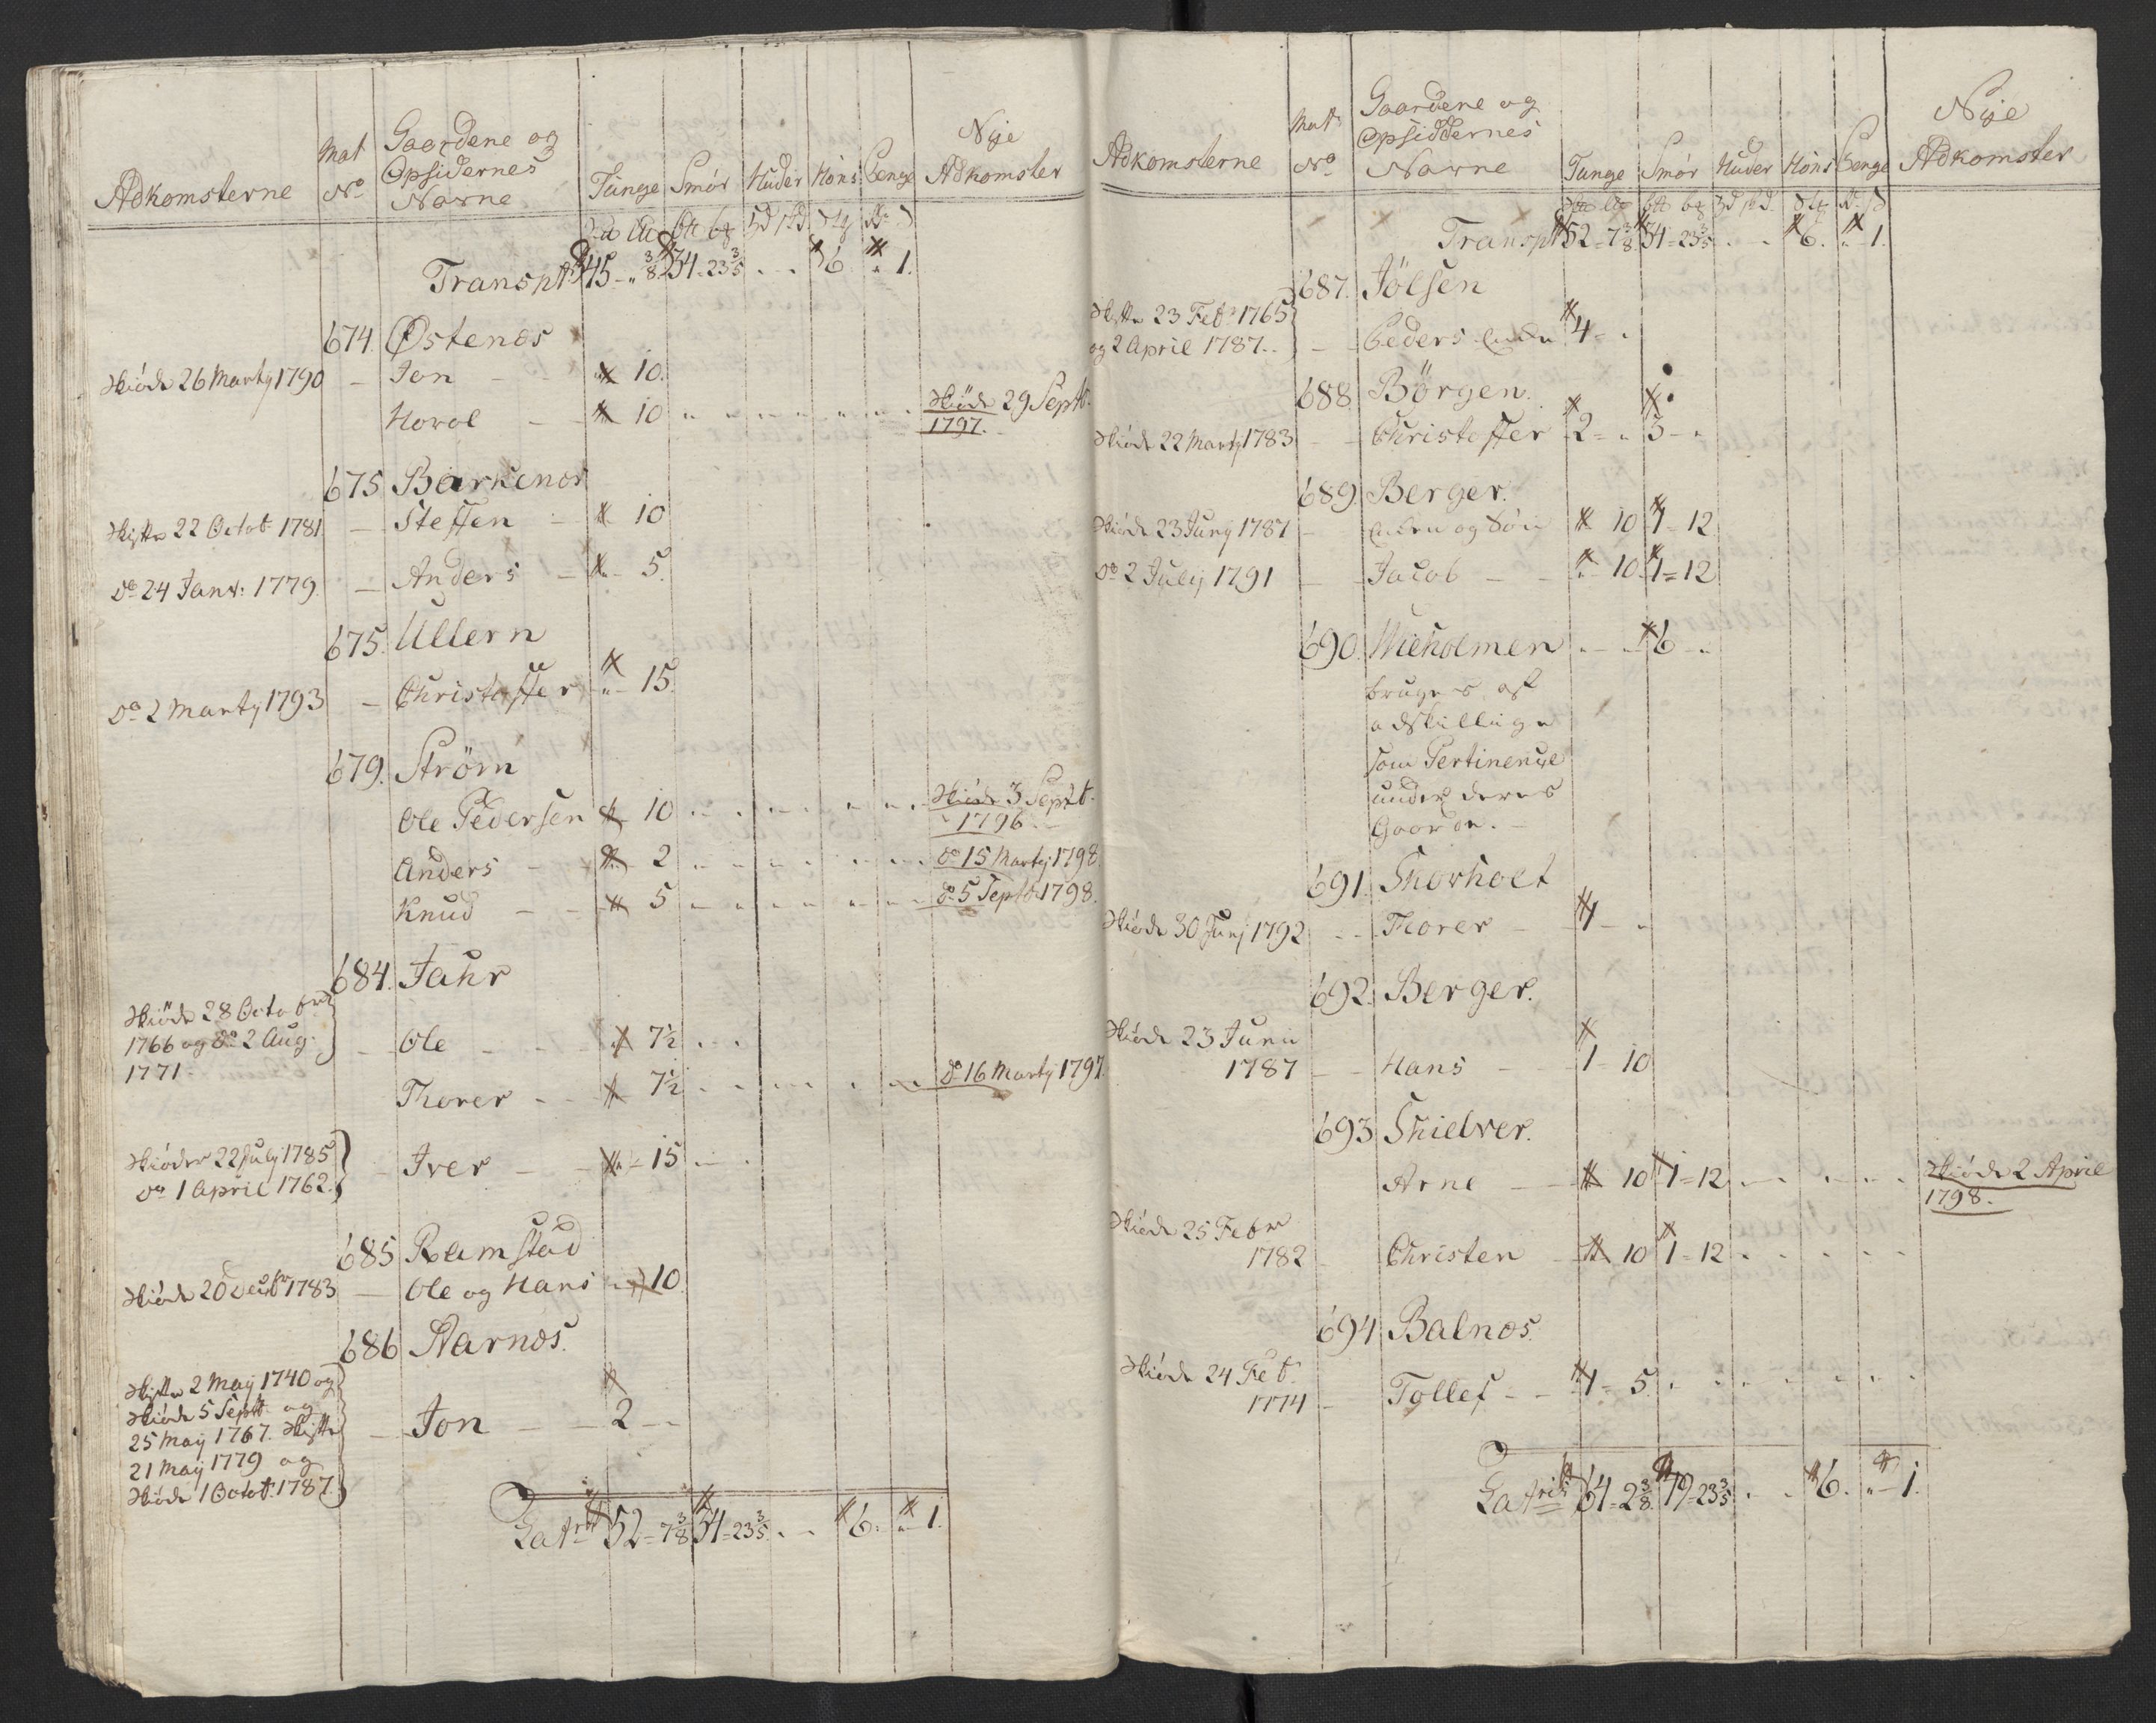 Adkomsterne Mat No Gaardene og Opsidernes Navne Tunge Smör Huder Höns Penge Nye Adkomster
Transpt 45 - „ 3/8 34 - 23 3/5 . . 6 „ 1.
674. Østenæs
Skiöde 26 Martj 1790 — Jon - 10.
Hovol - 10 Skiöde 29 Septb. 1797.
675 Barkenæs
Skifte 22 Octob. 1781 — Steffen - 10
Do 24 Janv: 1779 — Anders - 5.
675. Ullern
Do 2 Martj 1793 — Christoffer „ - 15.
679. Ström
Ole Pedersen 10 Skiöde 3 Septb. 1796.
Anders - 2 Do 15 Martj 1798
Knud - 5 Do 5 Septb 1798.
684. Jahr
Skiöde 28 Octobr
1766 og do 2 Aug. — Ole - 7½
1771.
Thorer - 7½ Do 16 Martj 1797.
Skiöder 22 July 1785
Do 1 April 1762. — Iver - 15
685 Ramstad
Skiöde 20 Decbr 1783 — Ole og Hans 10
686 Aarnæs.
Skifte 2 May 1740 og
Skiöde 5 Septb. og
25 May 1767. Skifte — Jon - 2 -
21 May 1779 og
Skiöde 1 Octob. 1787.
Latris 52 - 7 3/8 34 - 23 3/5 . - 6. „ - 1.
Adkomsterne Matr No Gaardene og Opsiddernes Navne Tunge Smör Huder Höns Penge Nye Adkomster
Transpt 52 - 7 3/8 34 - 23 3/5 . - 6. „ - 1.
687. Jölsen
Skifte 23 Feb. 1765
og 2 April 1787. — Peders Enke 4 - .
688. Börgen.
Skiöde 22 Martj 1783 — Christoffer 2 - „ 3 - .
689. Berger.
Skiöde 23 Junj 1787 — Enken og Sön 10 1 - 12
Do 2 July 1791 — Jacob - 10. 1 - 12
690. Mieholmen . - . 6 - .
bruges af
adskillige
som Pertinentze
under deres
Gaarde. -
691. Skovholt
Skiöde 30 Junj 1792 — Thorer - 1 - .
692. Berger.
Skiöde 23 Junii
1787 — Hans - 1 - 10
693. Skielver.
Arne - 10 1 - 12 Skiöde 2 April 1798.
Skiöde 25 Febr
1782 — Christen - 10 1 - 12
694. Balnæs.
Skiöde 24 Feb.
1774 — Tollef - 1 - 5.
Latris 64 - 2 3/8. 49 - 23 3/5 . . 6. „ - 1.